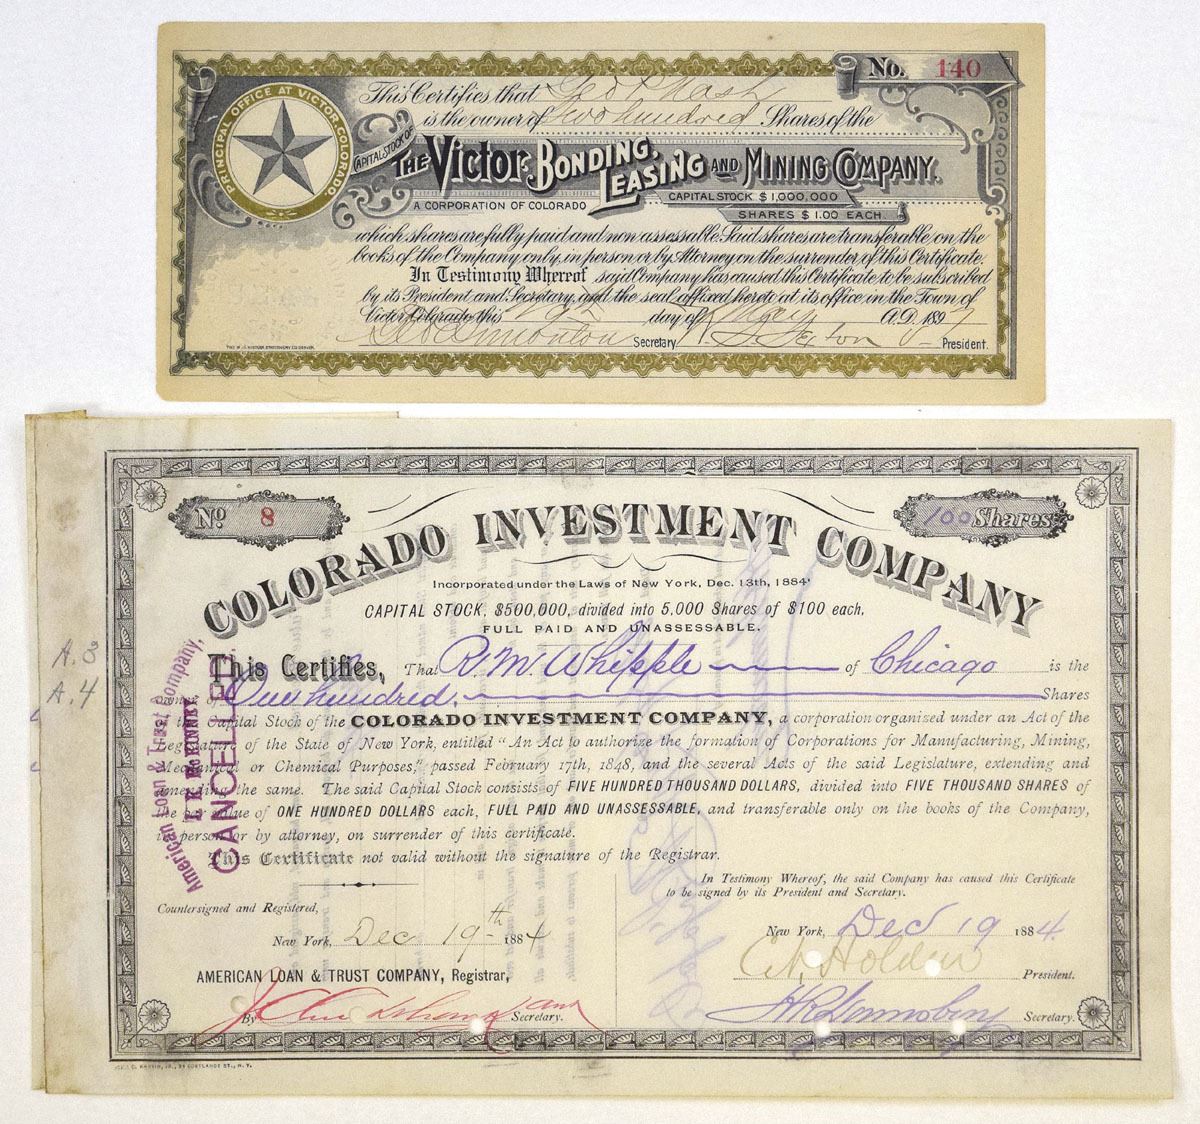 No. 140
PRINCIPAL OFFICE AT VICTOR, COLORADO.
This Certifies that Geo P Nash
is the owner of Two hundred Shares of the
CAPITAL STOCK OF
THE VICTOR BONDING, LEASING AND MINING COMPANY.
A CORPORATION OF COLORADO
CAPITAL STOCK $1,000,000
SHARES $1.00 EACH.
which shares are fully paid and non assessable. Said shares are transferable on the
books of the Company only, in person or by Attorney on the surrender of this Certificate.
In Testimony Whereof, said Company has caused this Certificate to be subscribed
by its President and Secretary, and the seal affixed hereto at its office in the Town of
Victor Colorado this day of May A.D. 1897
Secretary President.
No. 8
100 Shares
COLORADO INVESTMENT COMPANY
Incorporated under the Laws of New York, Dec. 13th, 1884
CAPITAL STOCK, $500,000, divided into 5,000 Shares of $100 each,
FULL PAID AND UNASSESSABLE.
A.3
A.4
This Certifies, That R. M. Whipple of Chicago is the
One hundred. Shares
of the Capital Stock of the COLORADO INVESTMENT COMPANY, a corporation organized under an Act of the
Legislature of the State of New York, entitled "An Act to authorize the formation of Corporations for Manufacturing, Mining,
Mechanical or Chemical Purposes," passed February 17th, 1848, and the several Acts of the said Legislature, extending and
amending the same. The said Capital Stock consists of FIVE HUNDRED THOUSAND DOLLARS, divided into FIVE THOUSAND SHARES of
the par value of ONE HUNDRED DOLLARS each, FULL PAID AND UNASSESSABLE, and transferable only on the books of the Company,
in person or by attorney, on surrender of this certificate.
This Certificate not valid without the signature of the Registrar.
American Loan & Trust Company,
CANCELLED.
In Testimony Whereof, the said Company has caused this Certificate
to be signed by its President and Secretary.
Countersigned and Registered,
New York, Dec 19th 1884
New York, Dec 19 1884.
AMERICAN LOAN & TRUST COMPANY, Registrar,
President.
By Secretary.
Secretary.